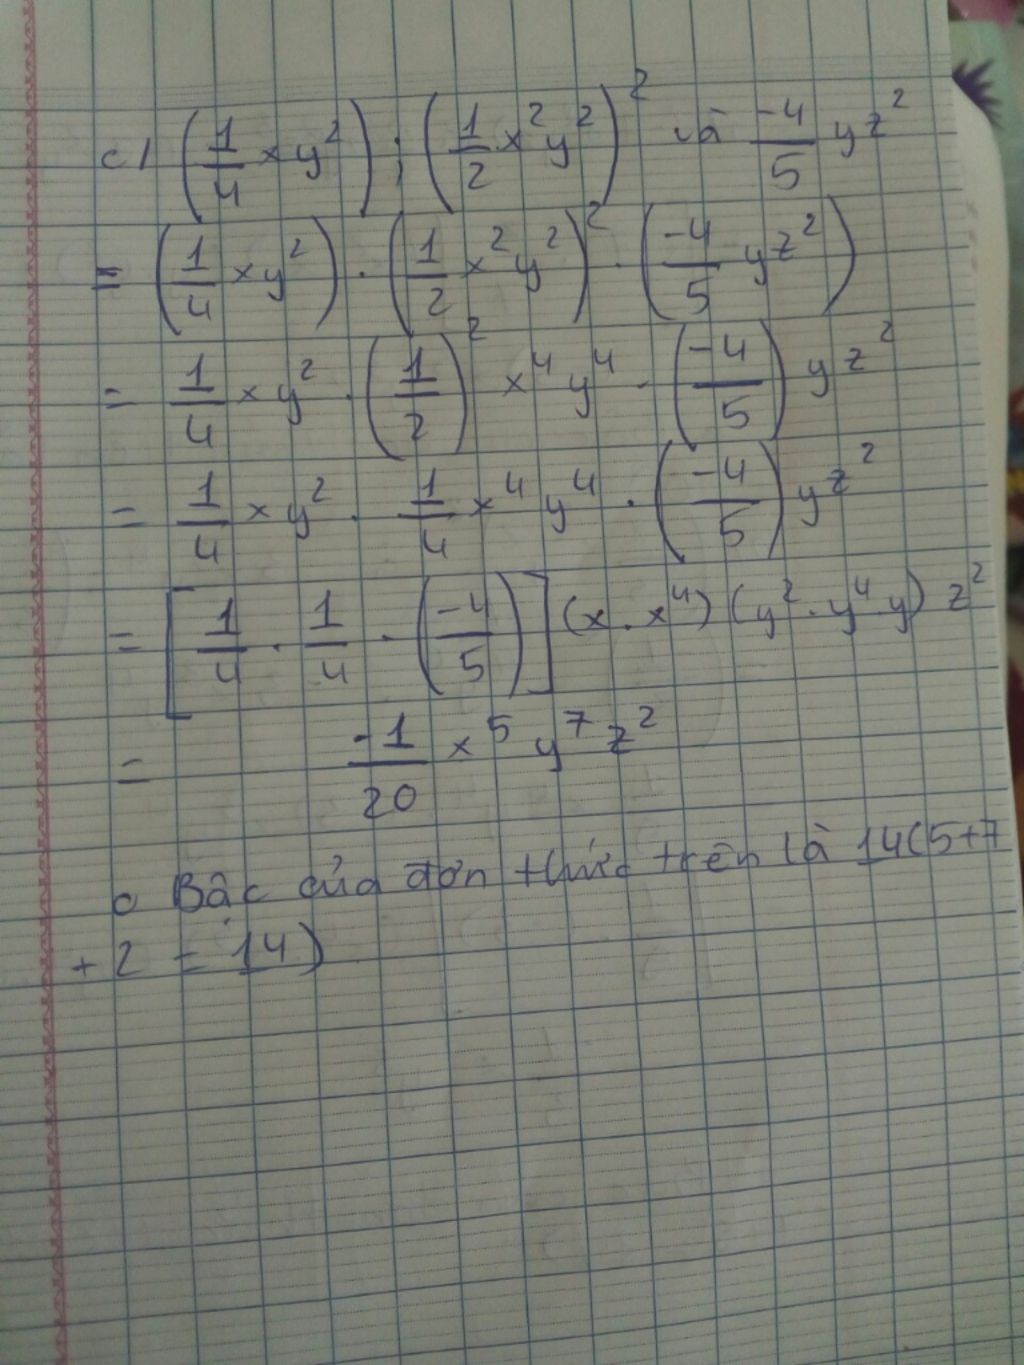 c) (1/4 xy²) ; (1/2 x²y²)² và -4/5 yz²
= (1/4 xy²) . (1/2 x²y²)² . (-4/5 yz²)
= 1/4 xy² . (1/2)² x⁴y⁴ . (-4/5) yz²
= 1/4 xy² . 1/4 x⁴y⁴ . (-4/5) yz²
= [1/4 . 1/4 . (-4/5)] (x . x⁴) (y² . y⁴ y) z²
= -1/20 x⁵ y⁷ z²
o Bậc của đơn thức trên là 14 (5+7
+ 2 = 14)